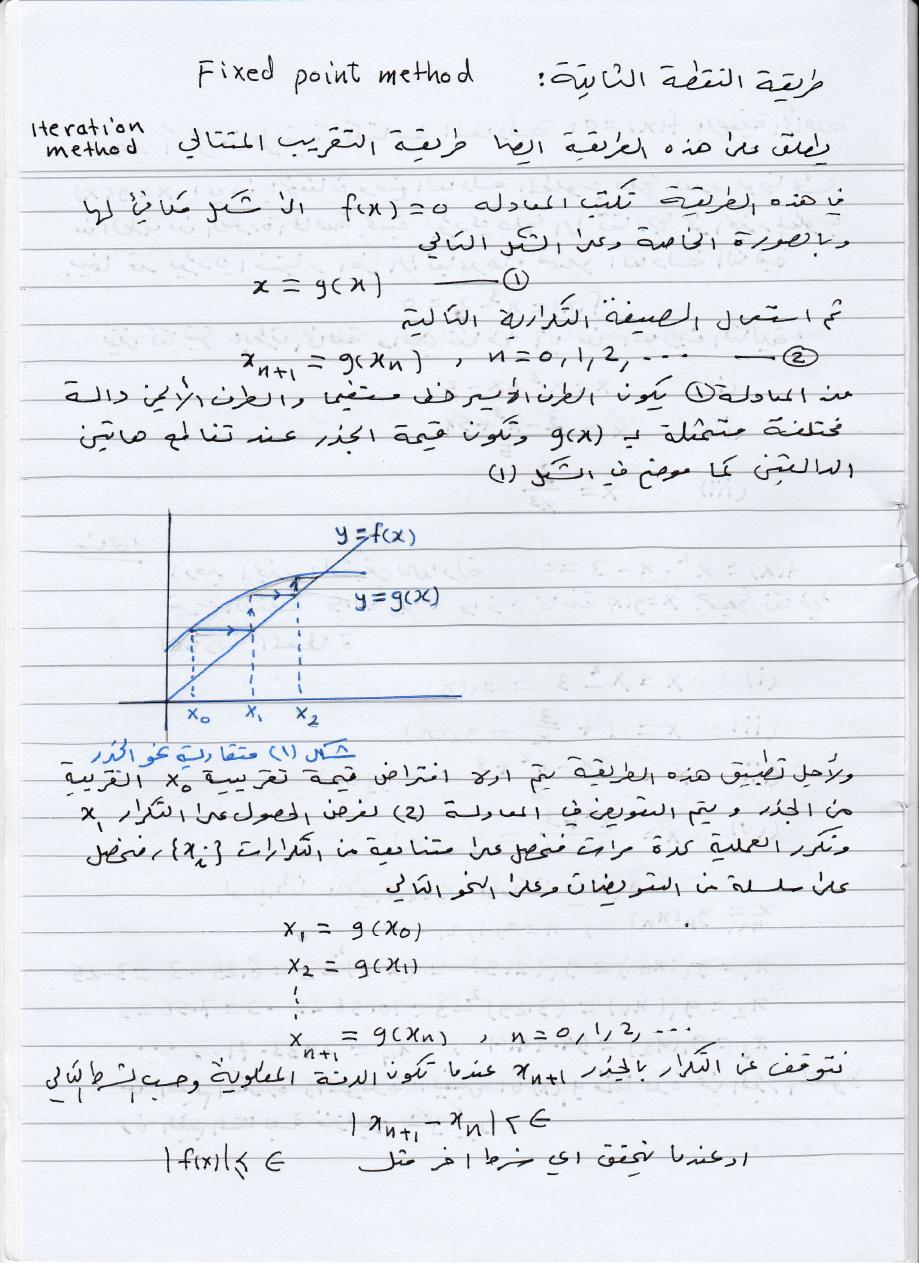 طريقة النقطة الثابتة: Fixed point method
يطلق على هذه الطريقة ايضا طريقة التقريب المتتالي Iteration method
في هذه الطريقة تكتب المعادله f(x) = 0 الى شكل مكافئ لها
وبالصورة الخاصة وعلى الشكل التالي
x = g(x) —— ①
ثم استعمال الصيغة التكرارية التالية
xₙ₊₁ = g(xₙ) , n = 0, 1, 2, ... —— ②
من المعادلة ① يكون الطرف الايسر خط مستقيما والطرف الأيمن دالة
مختلفة متمثلة بـ g(x) وتكون قيمة الجذر عند تقاطع هاتين
الدالتين كما موضح في الشكل (1)
y = f(x)
y = g(x)
x₀ x₁ x₂
شكل (1) متقاربة نحو الجذر
ولأجل تطبيق هذه الطريقة يتم اولا افتراض قيمة تقريبية x₀ القريبة
من الجذر ويتم التعويض في المعادلة (2) لغرض الحصول على التكرار x₁
ونكرر العملية عدة مرات فنحصل على متتابعة من التكرارات {xᵢ}, فنحصل
على سلسلة من التعويضات وعلى النحو التالي
x₁ = g(x₀)
x₂ = g(x₁)
⋮
xₙ₊₁ = g(xₙ) , n = 0, 1, 2, ...
نتوقف عن التكرار بالجذر xₙ₊₁ عندما تكون الدقة المطلوبة وحسب الشرط التالي
|xₙ₊₁ - xₙ| < ∈
او عندما يتحقق اي شرط اخر مثل |f(x)| ≤ ∈